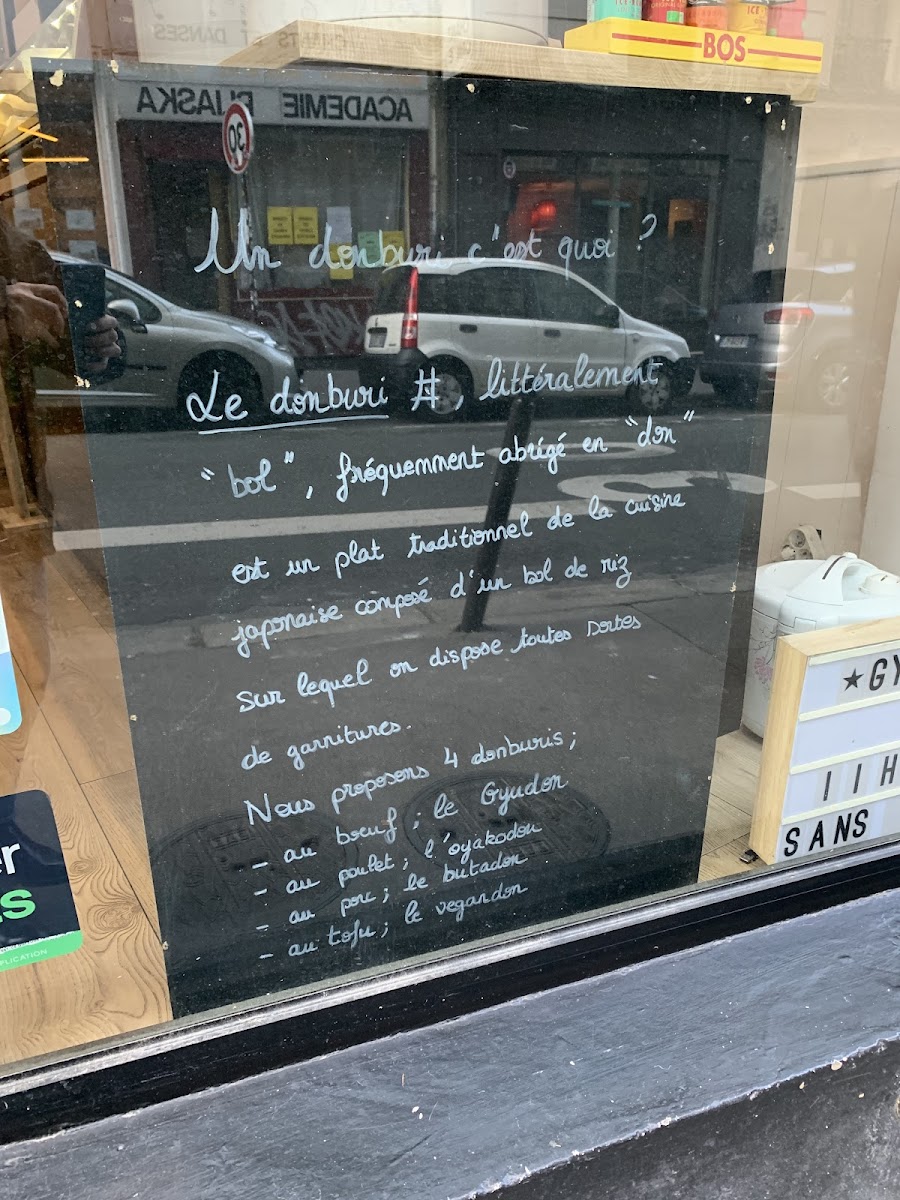 BOS
ACADEMIE
30
Un donburi c'est quoi ?
Le donburi #, littéralement
"bol", fréquemment abrégé en "don"
est un plat traditionnel de la cuisine
japonaise composé d'un bol de riz
sur lequel on dispose toutes sortes
de garnitures.
Nous proposons 4 donburis ;
- au boeuf ; le Gyudon
- au poulet ; l'oyakodon
- au porc ; le butadon
- au tofu ; le vegandon
★GY
11H
SANS